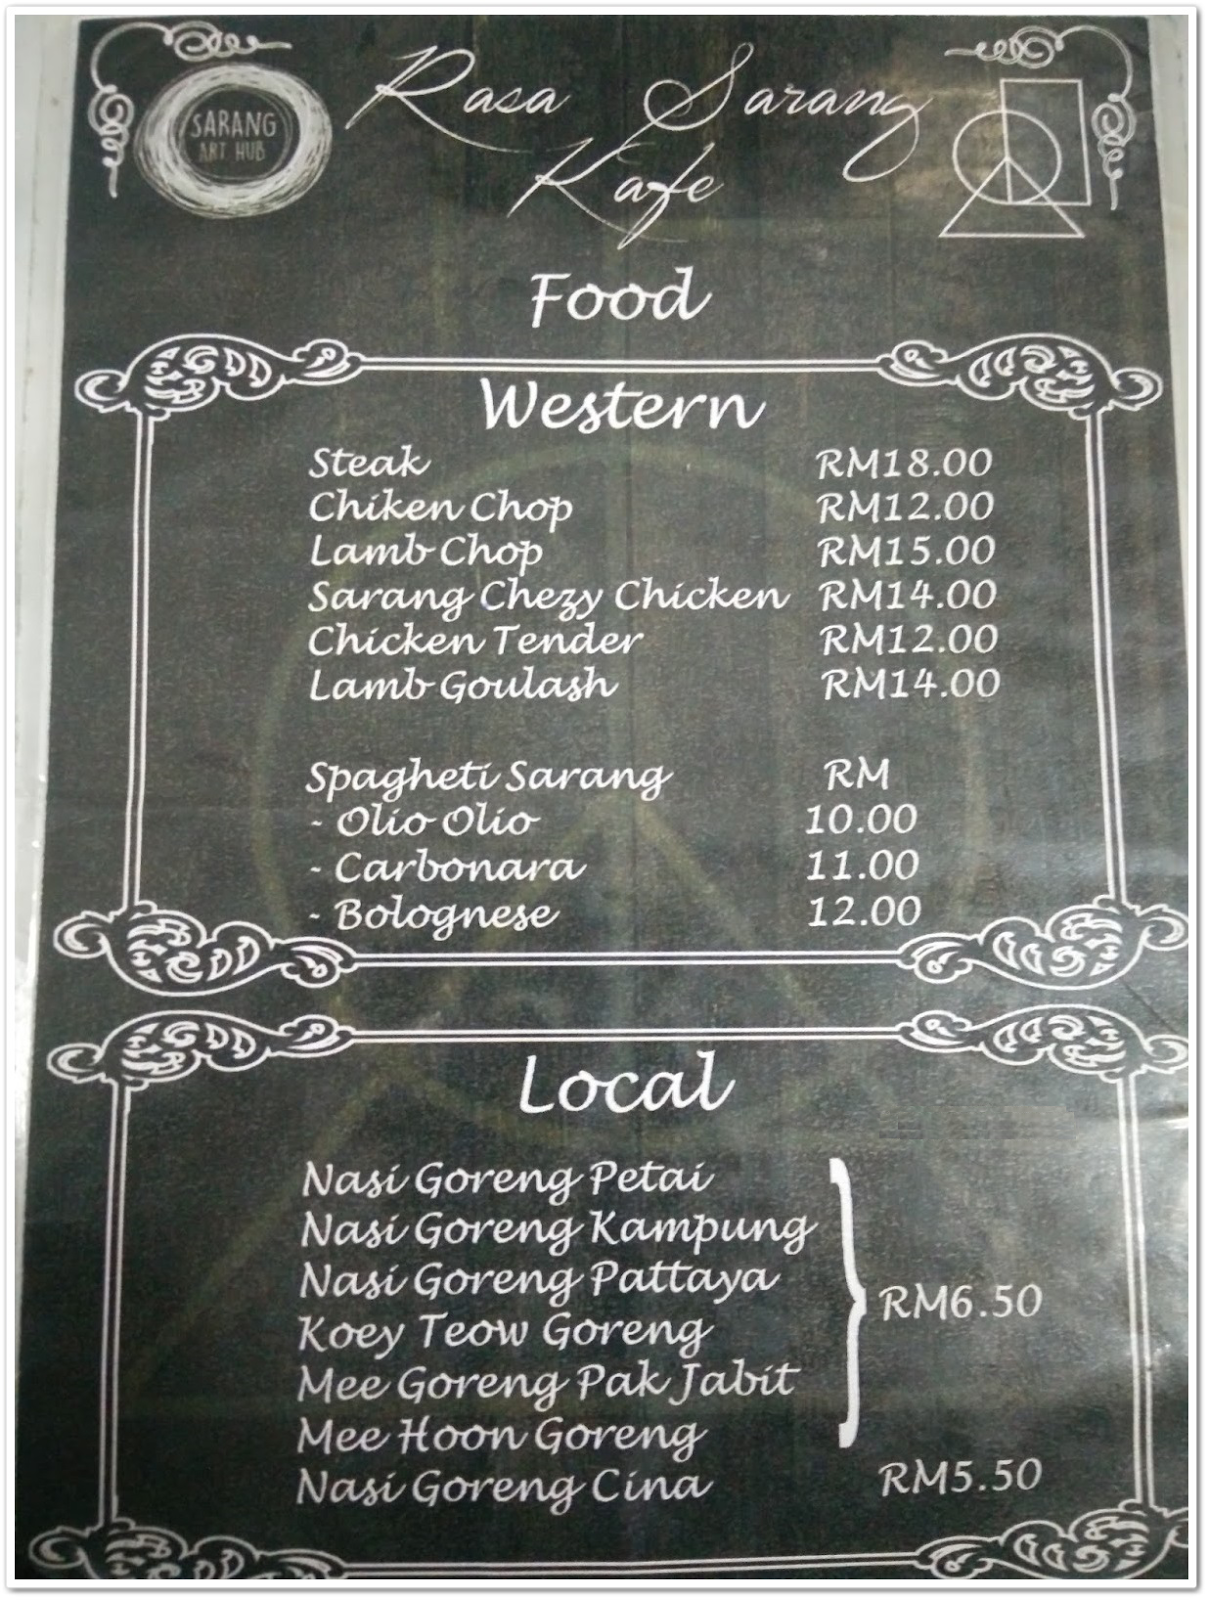 SARANG
ART HUB
Rasa Sarang
Kafe
Food
Western
Steak RM18.00
Chiken Chop RM12.00
Lamb Chop RM15.00
Sarang Chezy Chicken RM14.00
Chicken Tender RM12.00
Lamb Goulash RM14.00
Spagheti Sarang RM
- Olio Olio 10.00
- Carbonara 11.00
- Bolognese 12.00
Local
Nasi Goreng Petai
Nasi Goreng Kampung
Nasi Goreng Pattaya
RM6.50
Koey Teow Goreng
Mee Goreng Pak Jabit
Mee Hoon Goreng
Nasi Goreng Cina RM5.50